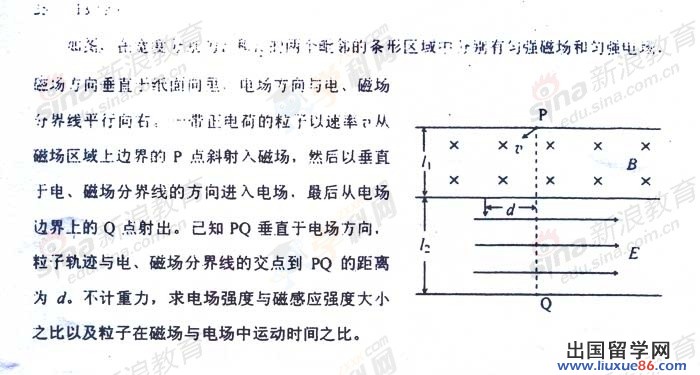 如图，在宽度分别为 的两个毗邻的条形区域中分别有匀强磁场和匀强电场，
磁场方向垂直于纸面向里，电场方向与电、磁场
分界线平行向右。一带正电荷的粒子以速率v从
磁场区域上边界的 P 点斜射入磁场，然后以垂直
于电、磁场分界线的方向进入电场，最后从电场
边界上的 Q 点射出。已知 PQ 垂直于电场方向，
粒子轨迹与电、磁场分界线的交点到 PQ 的距离
为 d。不计重力，求电场强度与磁感应强度大小
之比以及粒子在磁场与电场中运动时间之比。
P
v
l₁
B
d
l₂
E
Q
sina 新浪教育
edu.sina.com.cn
学科网
出国留学网
www.liuxue86.com